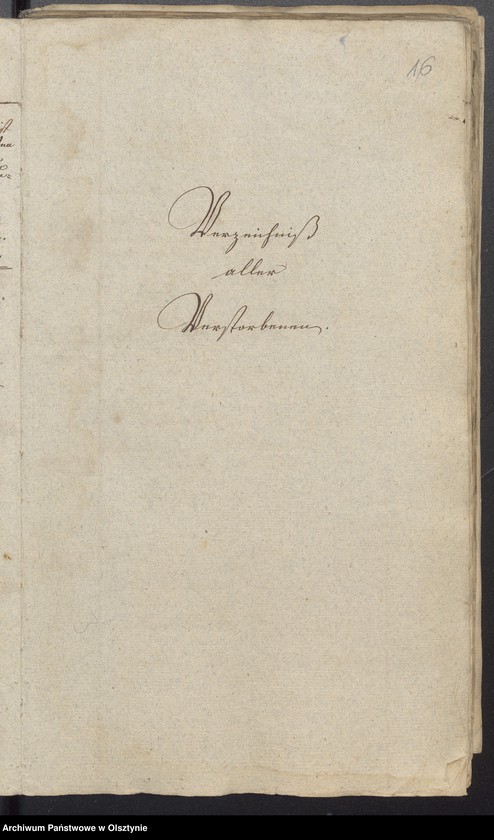 16
Verzeichniß
aller
Verstorbenen.
Archiwum Państwowe w Olsztynie